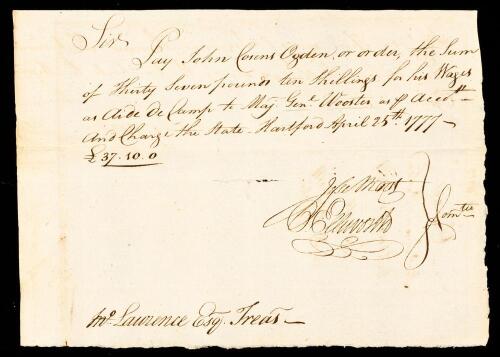 Sir
Pay John Cosens Ogden, or order, the Sum
of Thirty Seven pounds ten Shillings for his Wages
as Aid de Camp to Maj. Genl. Wooster as pr Accott.
And Charge the State. Hartford April 25th. 1777
£37.10.0
Ellsworth
Comtee
Jno. Lawrence Esq. Treas